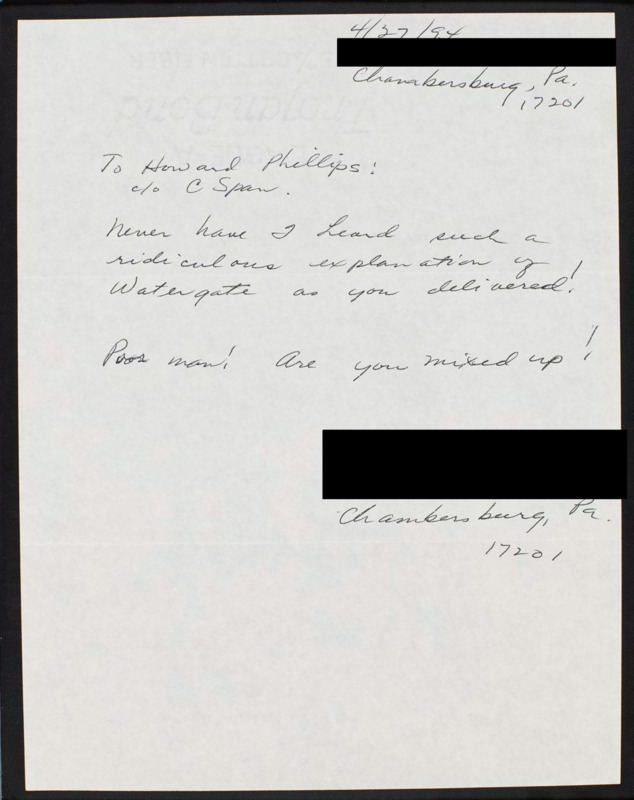 4/27/94
Chambersburg, Pa.
17201
To Howard Phillips:
c/o C Span.
Never have I heard such a
ridiculous explanation of
Watergate as you delivered!
Poor man! Are you mixed up!
Chambersburg, Pa.
17201